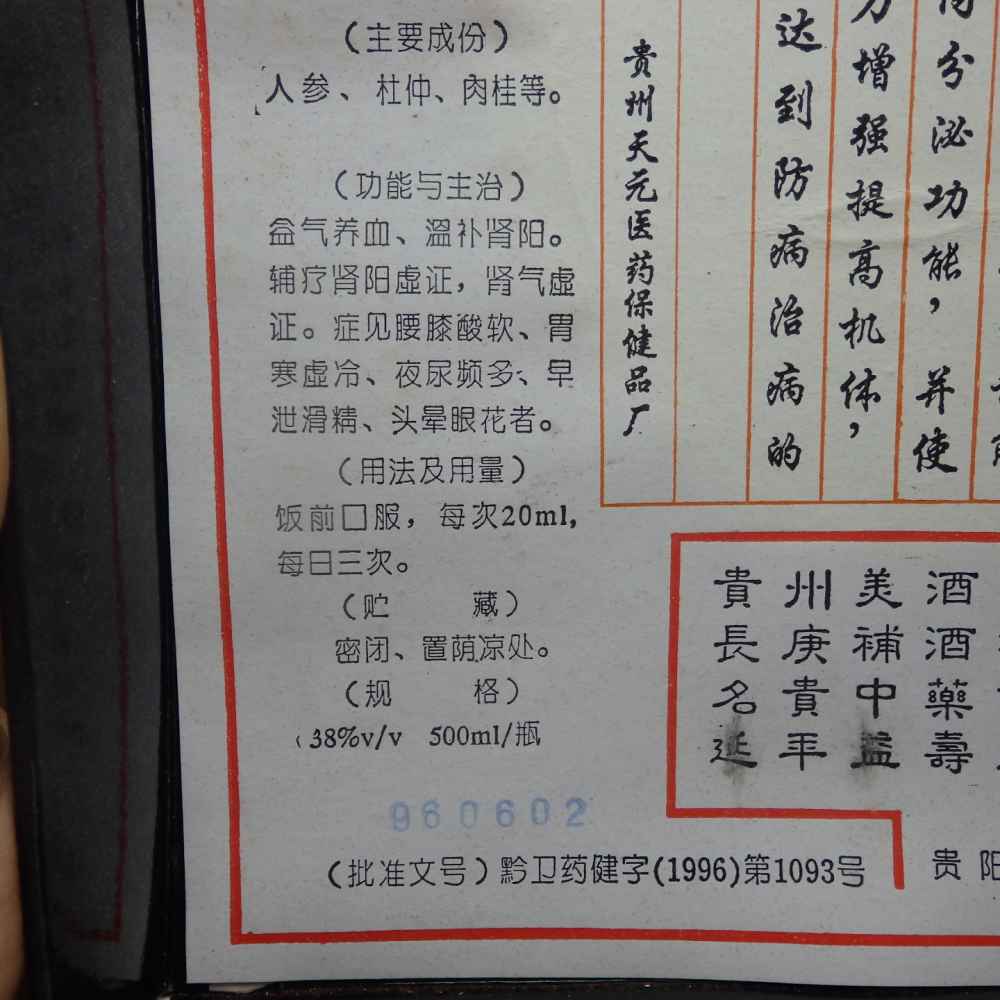 （主要成份）
人参、杜仲、肉桂等。
（功能与主治）
益气养血、温补肾阳。
辅疗肾阳虚证，肾气虚
证。症见腰膝酸软、胃
寒虚冷、夜尿频多、早
泄滑精、头晕眼花者。
（用法及用量）
饭前口服，每次20ml,
每日三次。
（贮 藏）
密闭、置荫凉处。
（规 格）
38%v/v 500ml/瓶
960602
（批准文号）黔卫药健字(1996)第1093号
分泌功能，并使
增强提高机体，
达到防病治病的
贵州天元医药保健品厂
酒酒藥壽
美補中益
州庚貴年
貴長名延
贵阳